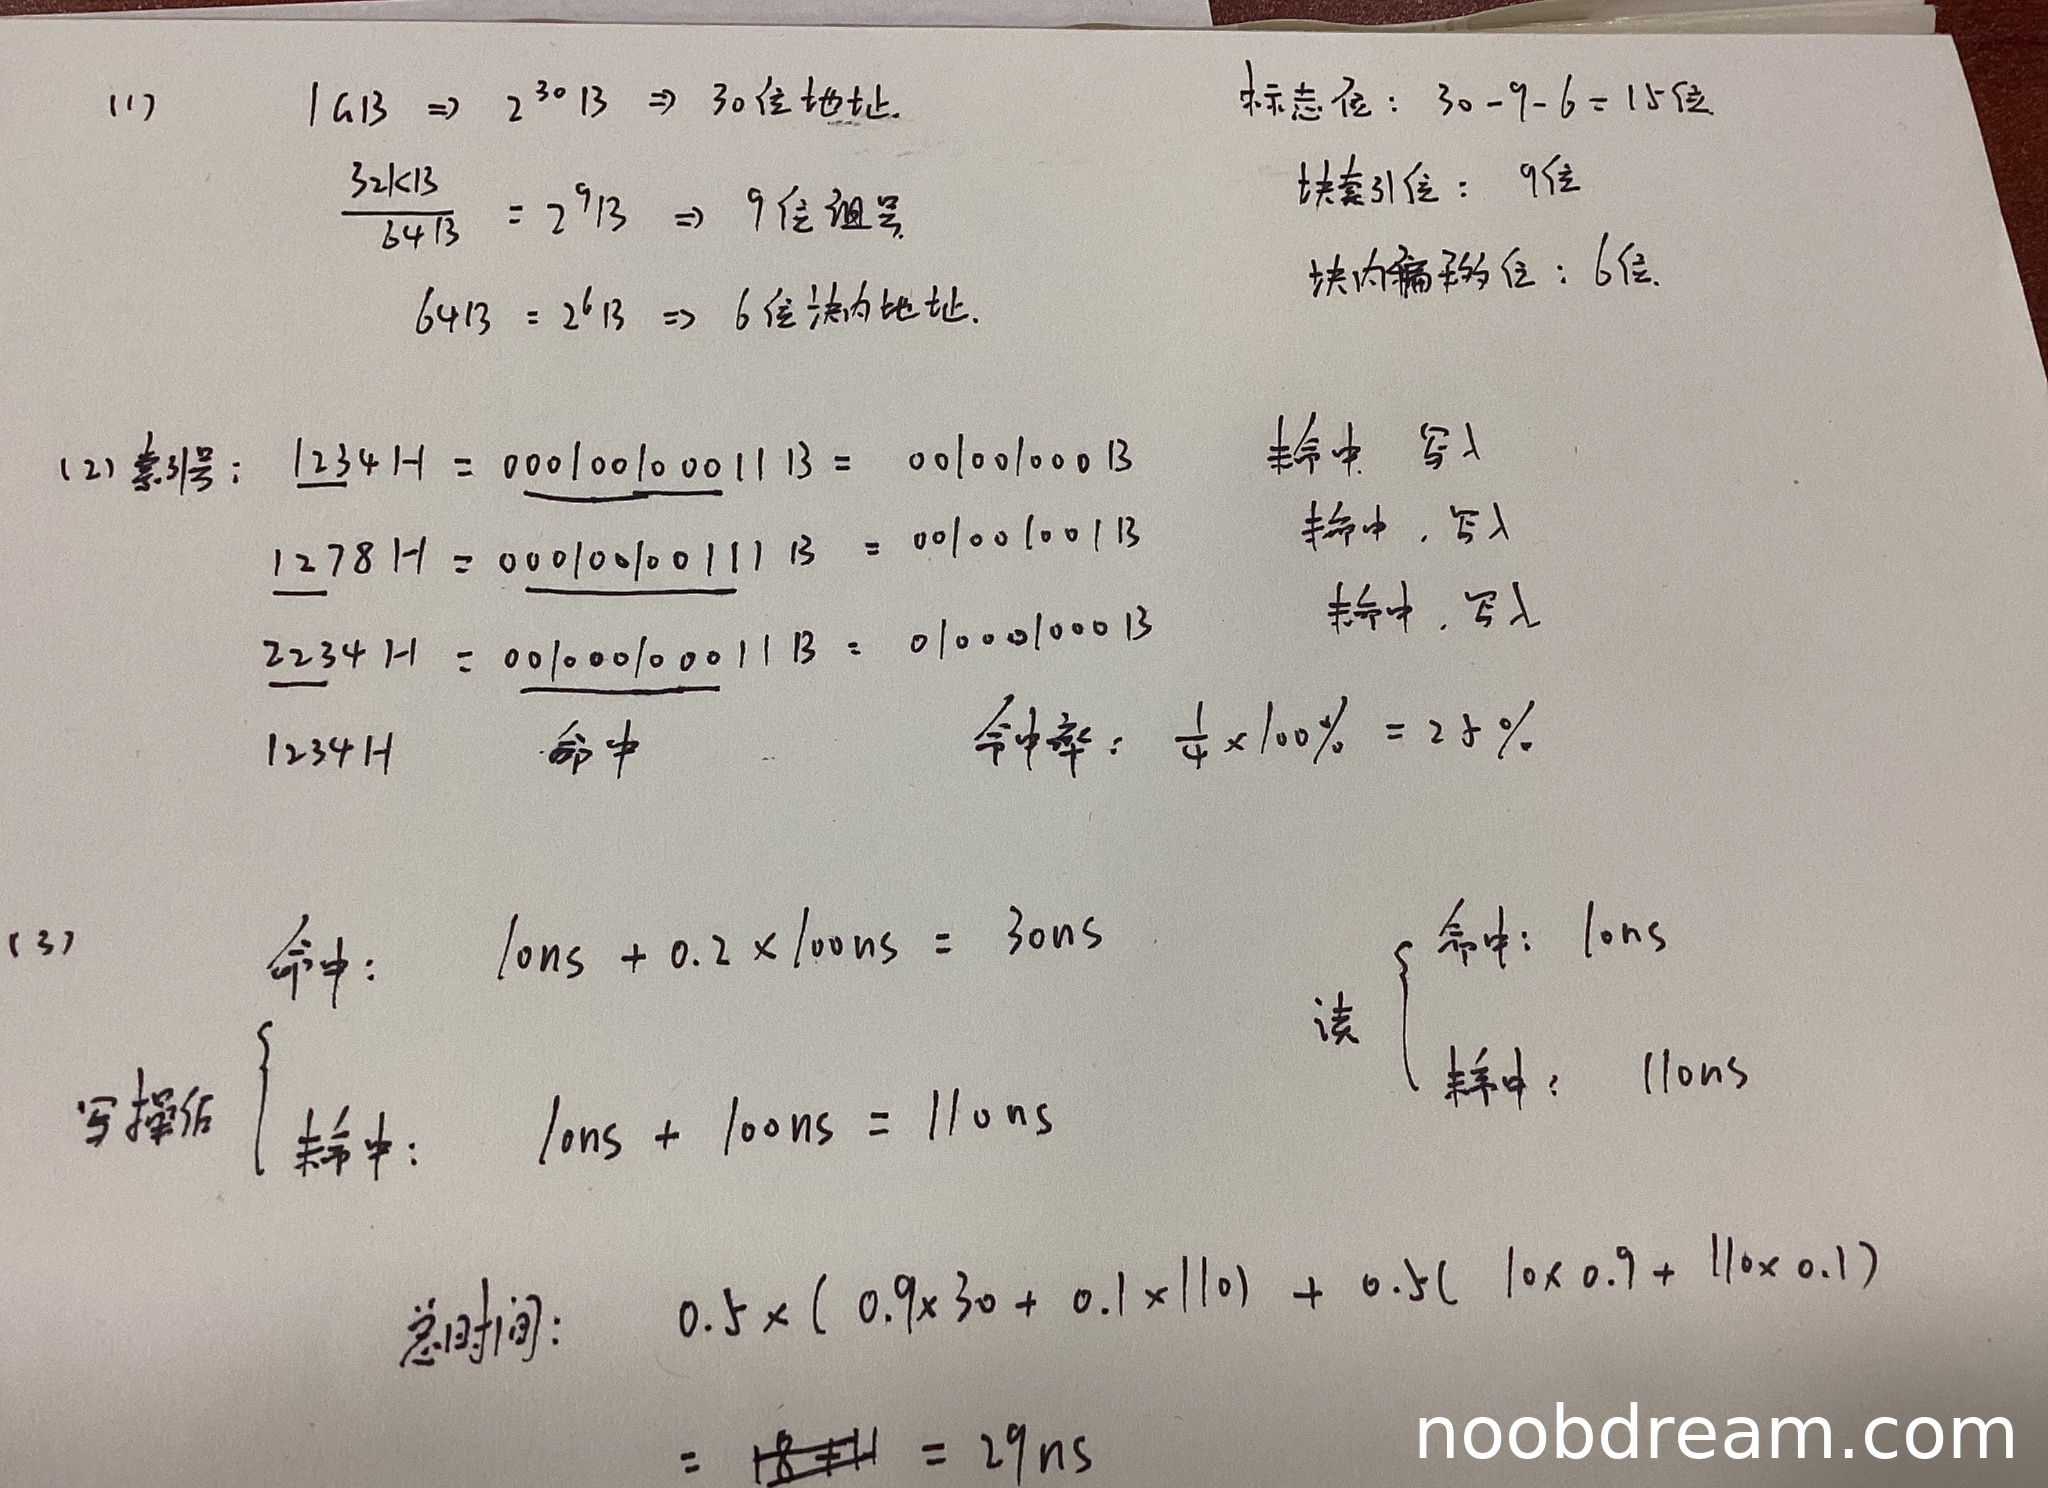 (1) 1GB ⇒ 2^30 B ⇒ 30位地址.
32KB / 64B = 2^9 B ⇒ 9位组号.
64B = 2^6 B ⇒ 6位块内地址.
标志位: 30-9-6=15位
块索引位: 9位
块内偏移位: 6位.
(2) 索引号: 1234H = 00010010001 1 B = 001001000B 未命中 写入
1278H = 0001001001 1 1 B = 001001001B 未命中. 写入
2234H = 0010001000 1 1 B = 010001000B 未命中. 写入
1234H 命中 命中率: 1/4 × 100% = 25%
(3) 写操作
命中: 10ns + 0.2 × 100ns = 30ns
未命中: 10ns + 100ns = 110ns
读
命中: 10ns
未命中: 110ns
总时间: 0.5 × ( 0.9×30 + 0.1×110) + 0.5( 10×0.9 + 110×0.1)
= = 29ns
noobdream.com